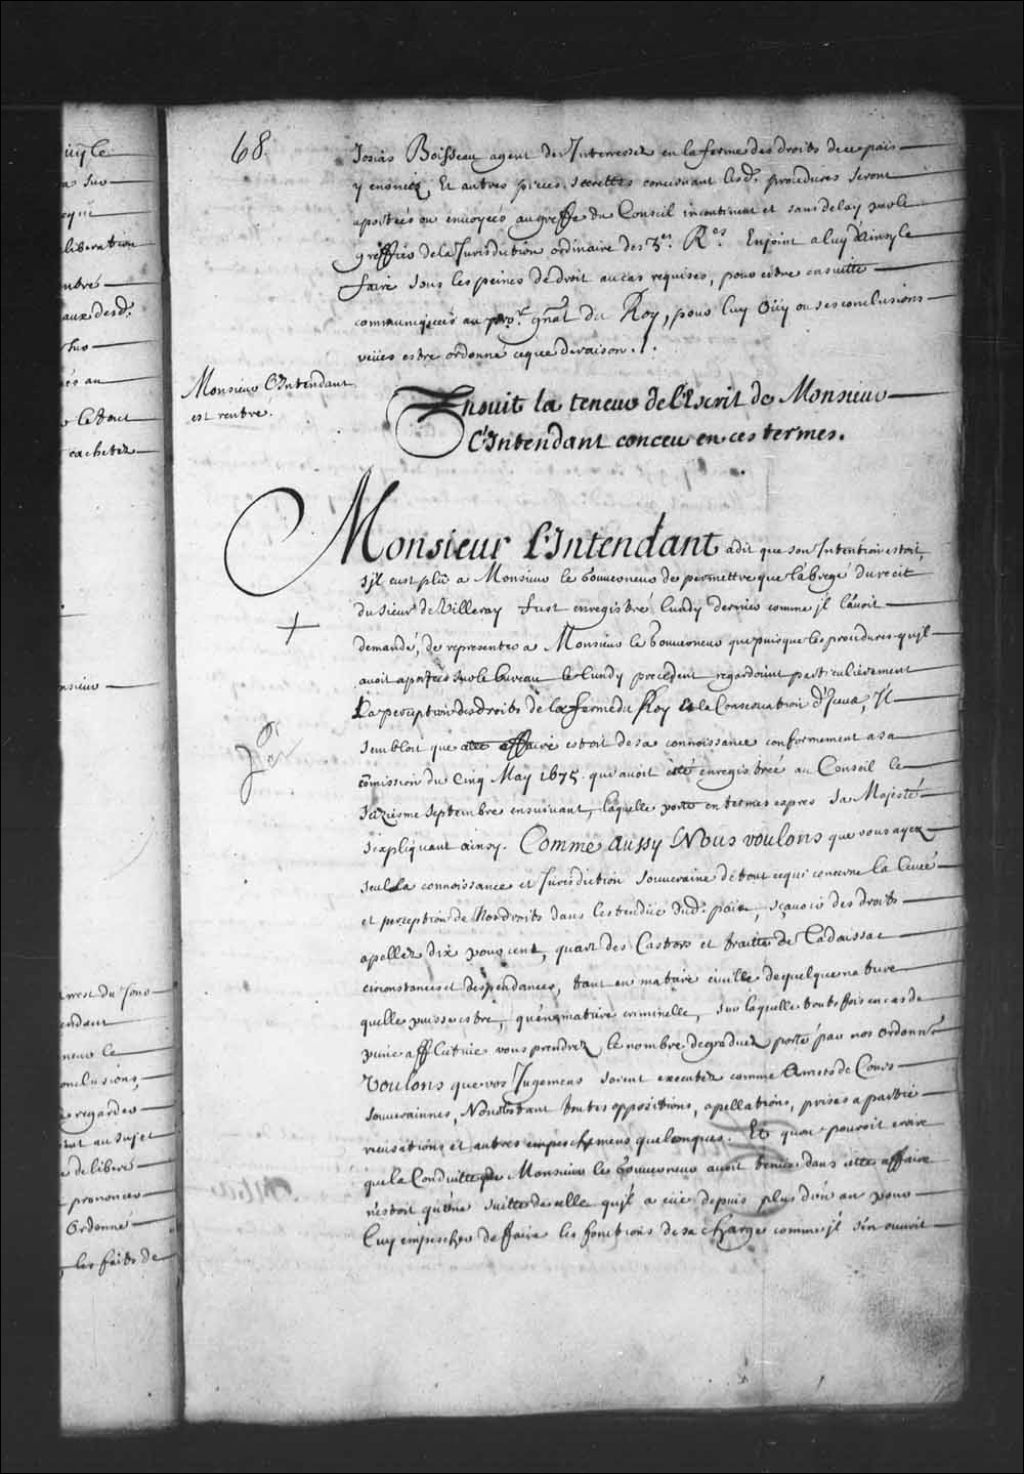 uÿ le
a sur
liberation
ntré
aux desd.
Sur
és au
r le tout
cachetez
nsieur
arrest du Jour
endant
neur le
onclusions,
regarder
au sujet
delibere
prononcer
Ordonné
les faits de
68.
Josias Boisseau agent des Interressez en la ferme des droits de ce païs
y enoncez, Et autres pieces secrettes concernant lesd. procedures seront
aportées ou envoyées au greffe du Conseil incontinent et sans delay par le
greffier de la Jurisdiction ordinaire des 3.es R.es Enjoint a luy d'ainsy le
faire sous les peines de droit au cas requises, pour estre ensuitte
communiquées au pro.r gñal du Roy, pour luy Oüy ou ses conclusions
veües estre ordonné ce que de raison ./.
Monsieur l'Intendant
est rentré.
Ensuit la teneur de l'Escrit de Monsieur
l'Intendant conceu en ces termes.
Monsieur l'Intendant a dit que son Intention estoit,
s'jl eust plû a Monsieur le Gouverneur de permettre que l'abregé du recit
du sieur de Villeray fust enregistré lundy dernier comme jl l'avoit
demandé, de representer a Monsieur le Gouverneur que puisque les procedures qu'jl
avoit aportées sur le bureau le lundy precedent regardoient particulièrement
La perception des droits de la ferme du Roy et la Conservation d'jceux, Il
sembloit que cette affaire estoit de sa connoissance conformement a sa
comission du cinq May 1675. qui avoit esté enregistrée au Conseil le
seiziesme Septembre ensuivant, laquelle porte en termes expres Sa Majesté
s'expliquant ainsy. Comme aussy Nous voulons que vous ayez
seul la connoissance et Jurisdiction souveraine de tout ce qui concerne la levée
et perception de Nos droits dans l'estendüe dud. païs, sçavoir des droits
apellez dix pour cent, quart des Castors et traitte de Tadoussac
circonstances et despendances, tant en matiere civille de quelque nature
quelle puisse estre, qu'en matiere criminelle, sur laquelle toutefois en cas de
peine afflictive vous prendrez le nombre de graduez porté par nos ordonn.es
Voulons que vos Jugemens soient executez comme Arrests de Cours
souveraines, Nonobstant touttes oppositions, apellations, prises a partie
recusations et autres empeschemens quelconques. Et quoi pouvoit croire
que la Conduitte que Monsieur le Gouverneur avoit tenüe dans cette affaire
n'estoit qu'une suitte de celle qu'jl a eüe depuis plus d'un an pour
luy empescher de ffaire les fonctions de sa charge comme jl s'en ouvroit